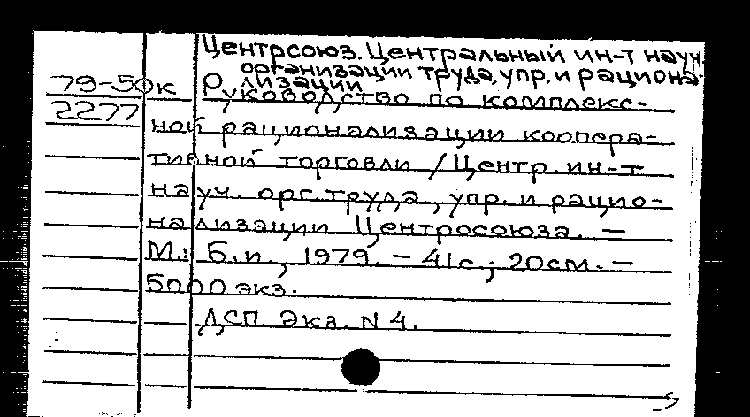 Центрсоюз. Центральный ин-т науч.
организации труда, упр. и рациона-
лизации
79-50к Руководство по комплекс-
2277
ной рационализации коопера-
тивной торговли / Центр. ин-т
науч. орг. труда, упр. и рацио-
нализации Центросоюза. —
М.: Б.и., 1979. — 41с.; 20см. —
5000 экз.
ДСП Экз. N 4.